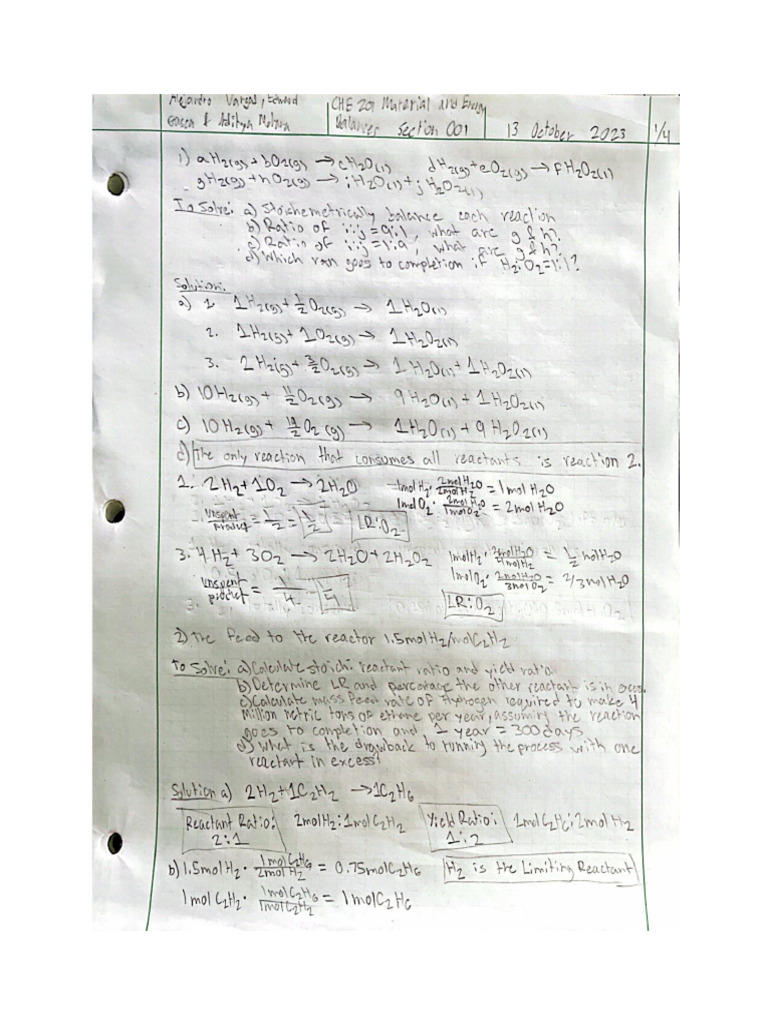 Alejandro Vargas, Edward
& Aditya
CHE 201 Material and Energy
Balances Section 001
13 October 2023
1/4
1) aH2(g) + bO2(g) → cH2O(l) dH2(g) + eO2(g) → fH2O2(l)
gH2(g) + hO2(g) → iH2O(l) + jH2O2(l)
To Solve: a) Stoichemetrically balance each reaction
b) Ratio of i:j = 9:1, what are g & h?
c) Ratio of i:j = 1:9, what are g & h?
d) Which rxn goes to completion if H2:O2=1:1?
Solution:
a) 1. 1H2(g) + 1/2O2(g) → 1H2O(l)
2. 1H2(g) + 1O2(g) → 1H2O2(l)
3. 2H2(g) + 3/2O2(g) → 1H2O(l) + 1H2O2(l)
b) 10H2(g) + 11/2O2(g) → 9H2O(l) + 1H2O2(l)
c) 10H2(g) + 19/2O2(g) → 1H2O(l) + 9H2O2(l)
d) The only reaction that consumes all reactants is reaction 2.
1. 2H2 + 1O2 → 2H2O 1molH2 · 2molH2O/2molH2 = 1molH2O
1molO2 · 2molH2O/1molO2 = 2molH2O
unspent/product = 1/2 = 1/2 LR: O2
3. 4H2 + 3O2 → 2H2O + 2H2O2 1molH2 · 2molH2O/4molH2 = 1/2molH2O
1molO2 · 2molH2O/3molO2 = 2/3molH2O
unspent/product = 1/4
LR: O2
2) The feed to the reactor 1.5molH2/molC2H2
To Solve: a) Calculate stoichi reactant ratio and yield ratio
b) Determine LR and percentage the other reactant is in exces.
c) Calculate mass feed rate of Hydrogen required to make 4
million metric tons of ethane per year, assuming the reaction
goes to completion and 1 year = 300 days
d) What is the drawback to running the process with one
reactant in excess?
Solution a) 2H2 + 1C2H2 → 1C2H6
Reactant Ratio: 2molH2:1molC2H2 Yield Ratio: 1molC2H6:2molH2
2:1 1:2
b) 1.5molH2 · 1molC2H6/2molH2 = 0.75molC2H6 H2 is the Limiting Reactant
1molC2H2 · 1molC2H6/1molC2H2 = 1molC2H6